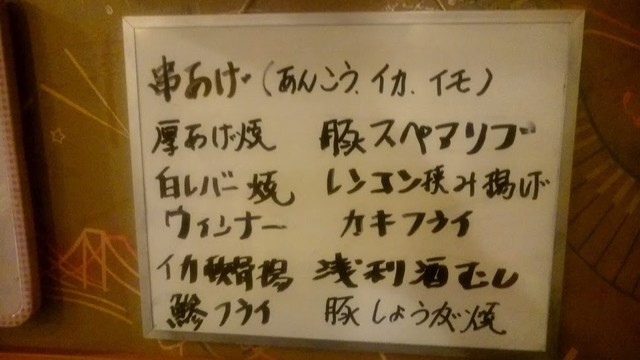 串あげ(あんこう、イカ、イモ)
厚あげ焼 豚スペアリブ
白レバー焼 レンコン挟み揚げ
ウィンナー カキフライ
イカ軟骨揚 浅利酒むし
鯵フライ 豚しょうが焼